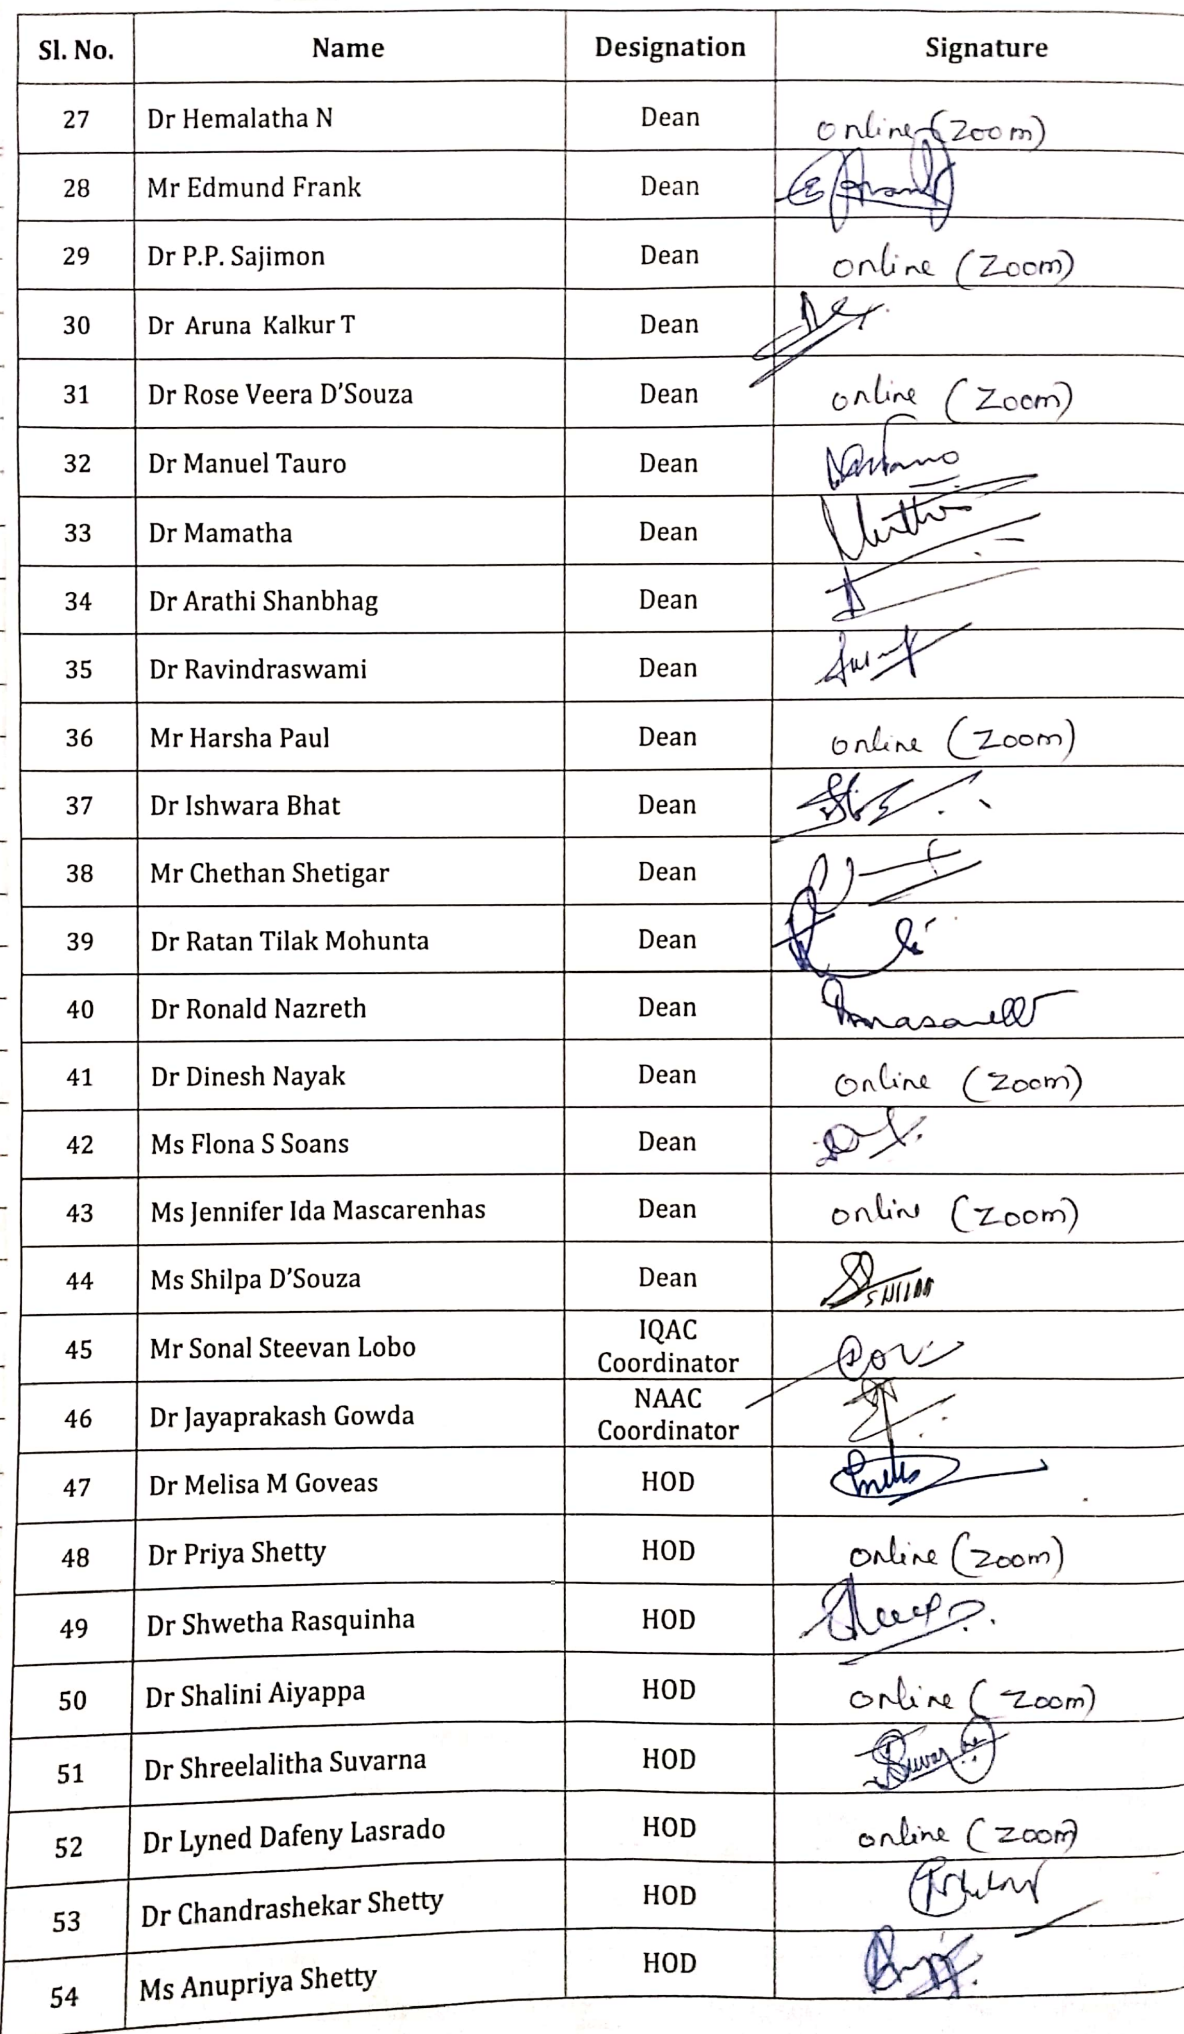 Sl. No. Name Designation Signature
27 Dr Hemalatha N Dean online (Zoom)
28 Mr Edmund Frank Dean
29 Dr P.P. Sajimon Dean online (Zoom)
30 Dr Aruna Kalkur T Dean
31 Dr Rose Veera D'Souza Dean online (Zoom)
32 Dr Manuel Tauro Dean
33 Dr Mamatha Dean
34 Dr Arathi Shanbhag Dean
35 Dr Ravindraswami Dean
36 Mr Harsha Paul Dean online (Zoom)
37 Dr Ishwara Bhat Dean
38 Mr Chethan Shetigar Dean
39 Dr Ratan Tilak Mohunta Dean
40 Dr Ronald Nazreth Dean
41 Dr Dinesh Nayak Dean online (Zoom)
42 Ms Flona S Soans Dean
43 Ms Jennifer Ida Mascarenhas Dean online (Zoom)
44 Ms Shilpa D'Souza Dean
45 Mr Sonal Steevan Lobo IQAC
Coordinator
46 Dr Jayaprakash Gowda NAAC
Coordinator
47 Dr Melisa M Goveas HOD
48 Dr Priya Shetty HOD online (Zoom)
49 Dr Shwetha Rasquinha HOD
50 Dr Shalini Aiyappa HOD online (Zoom)
51 Dr Shreelalitha Suvarna HOD
52 Dr Lyned Dafeny Lasrado HOD online (Zoom)
53 Dr Chandrashekar Shetty HOD
54 Ms Anupriya Shetty HOD